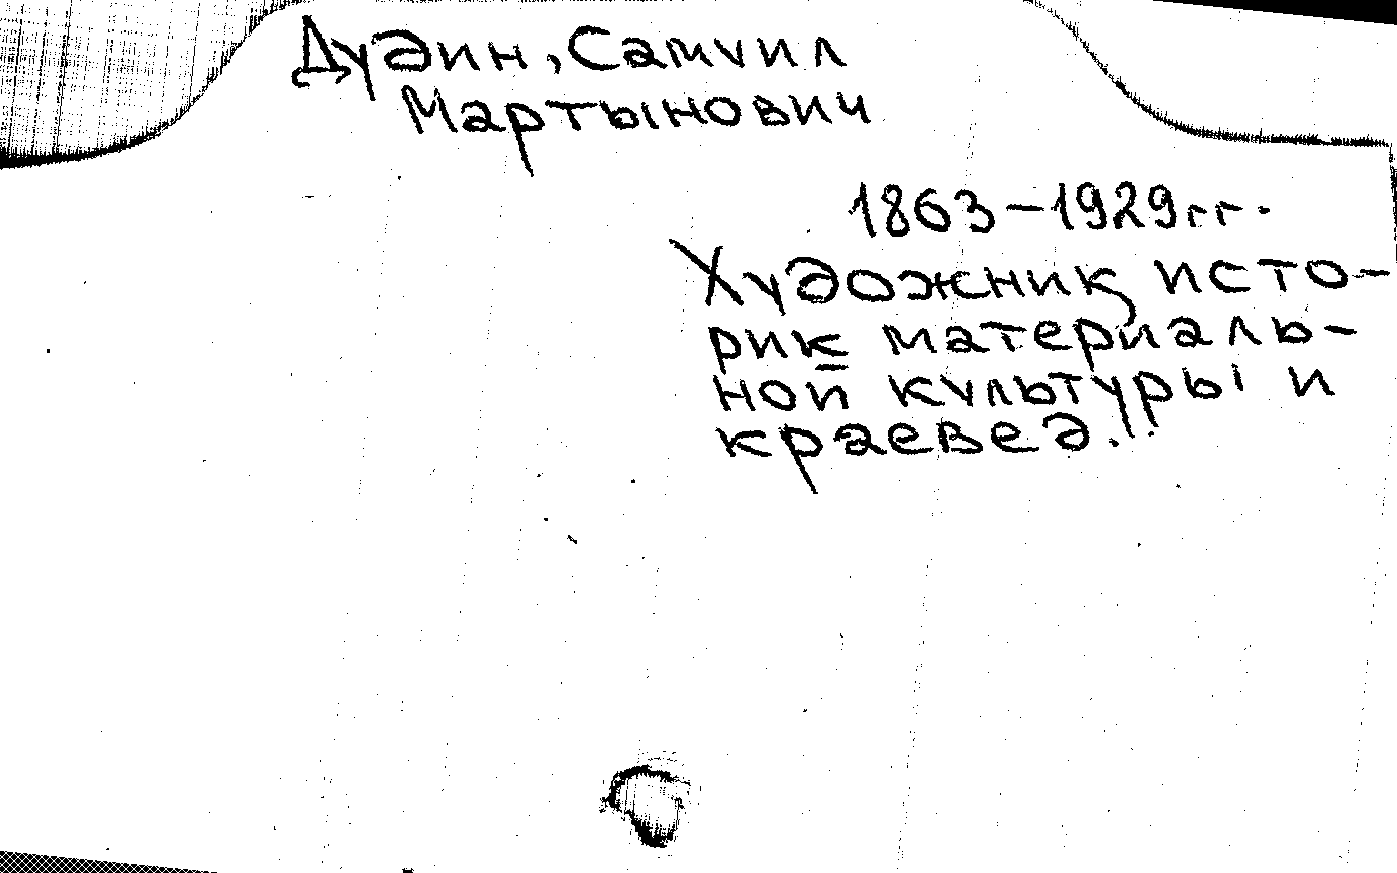 Дудин, Самуил
Мартынович
1863-1929 гг.
Художник, исто-
рик материаль-
ной культуры и
краевед.